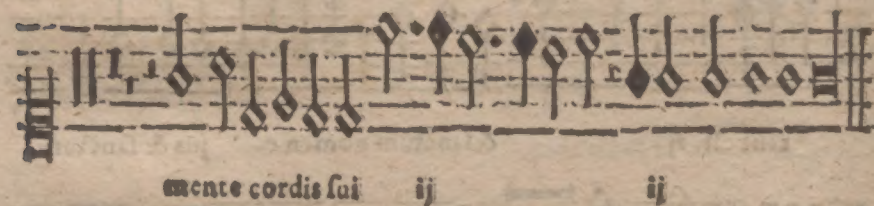 mente cordis sui ij ij